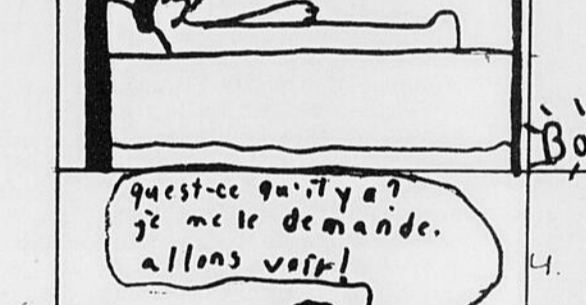 quest-ce qu'il y a?
je me le demande.
allons voir!
4.